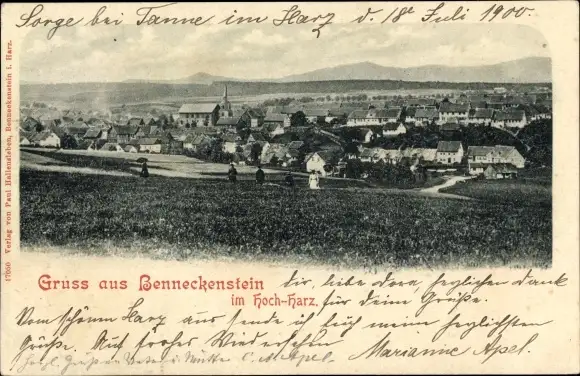 Sorge bei Tanne im Harz d. 18te Juli 1900.
17050 Verlag von Paul Hallensleben, Benneckenstein i. Harz.
Gruss aus Benneckenstein
im Hoch-Harz.
Dir, liebe Dora, herzlichen Dank
für Deine Grüße.
Vom schönen Harz aus sende ich Euch meine herzlichsten
Grüße. Auf frohes Wiedersehen
Marianne Apel.
Herzl. Grüße an